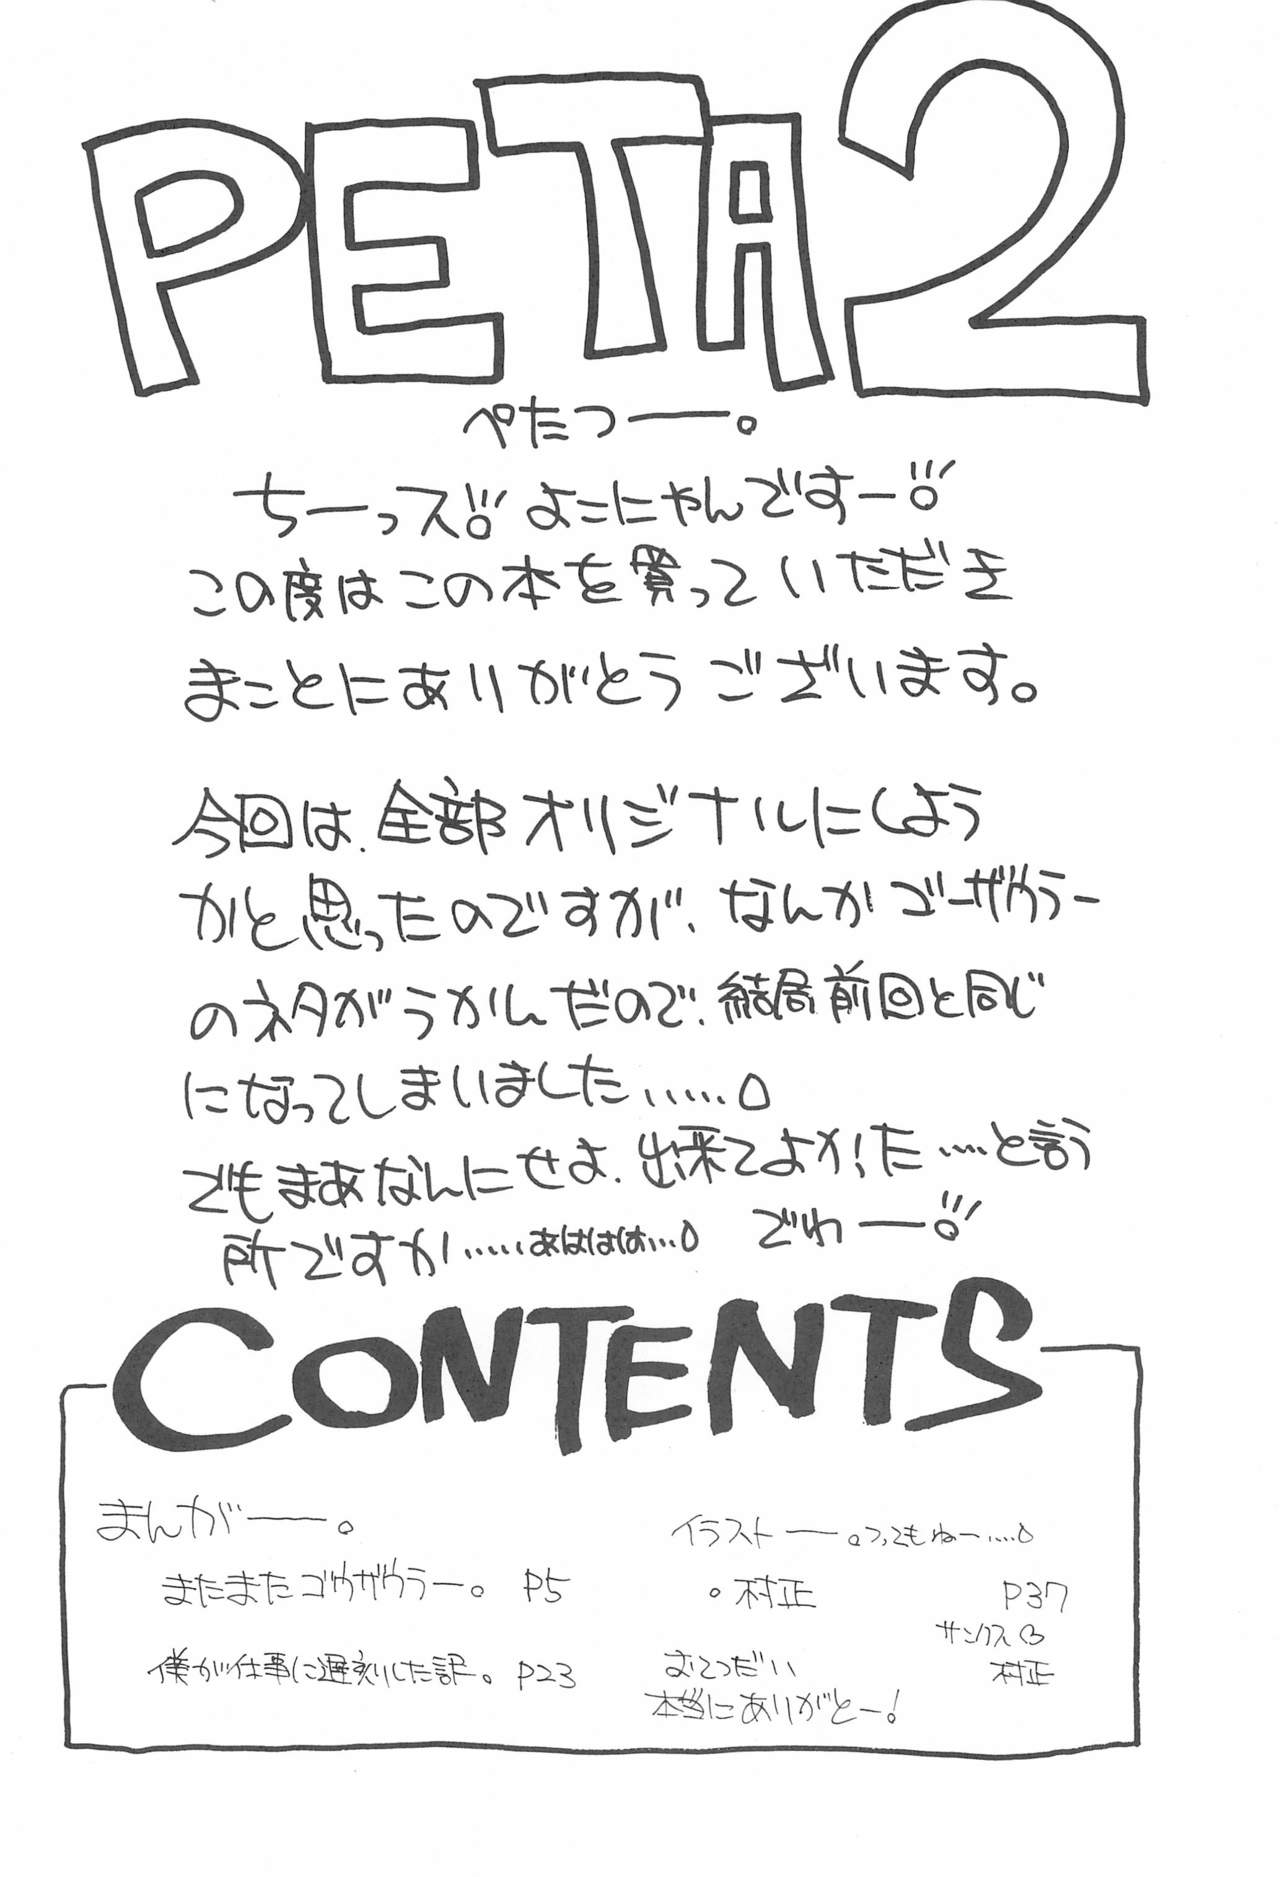 PETA2
ぺたつー。
ちーっス!! よこにゃんですー!!
この度はこの本を買っていただき
まことにありがとうございます。
今回は、全部オリジナルにしよう
かと思ったのですが、なんかゴーザウラー
のネタがうかんだので、結局前回と同じ
になってしまいました……。
でもまあなんにせよ、出来てよかった……と言う
所ですか……あはははは…。 でわー!!
CONTENTS
まんがー。
またまたゴウザウラー。 P5
僕が仕事に遅刻した訳。 P23
イラストー。ってもねー……。
。村正 P37
サンクス♡
おてつだい 村正
本当にありがとー!